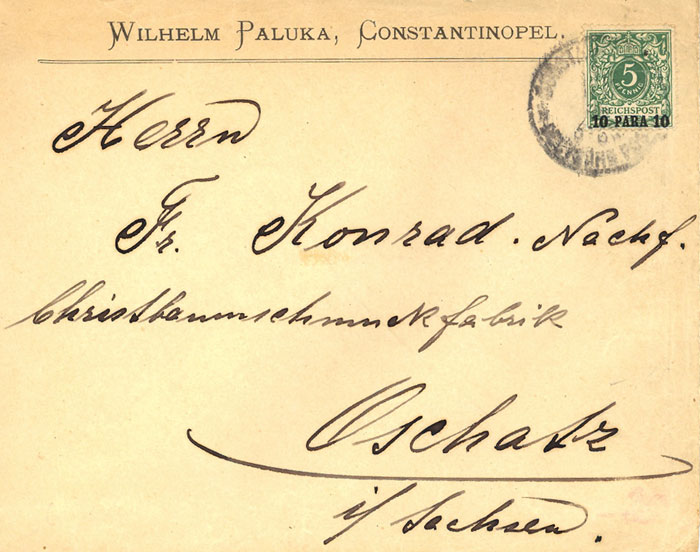 WILHELM PALUKA, CONSTANTINOPEL.
5
PFENNIG
REICHSPOST
10 PARA 10
Herrn
Fr. Konrad. Nachf.
Christbaumschmuckfabrik
Oschatz
i/ Sachsen.